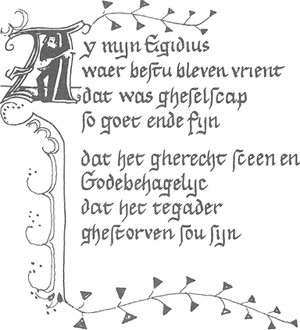 Ay mijn Egidius
waer bestu bleven vrient
dat was gheselscap
so goet ende fijn
dat het gherecht sceen en
Godebehagelijc
dat het tegader
ghestorven sou sijn